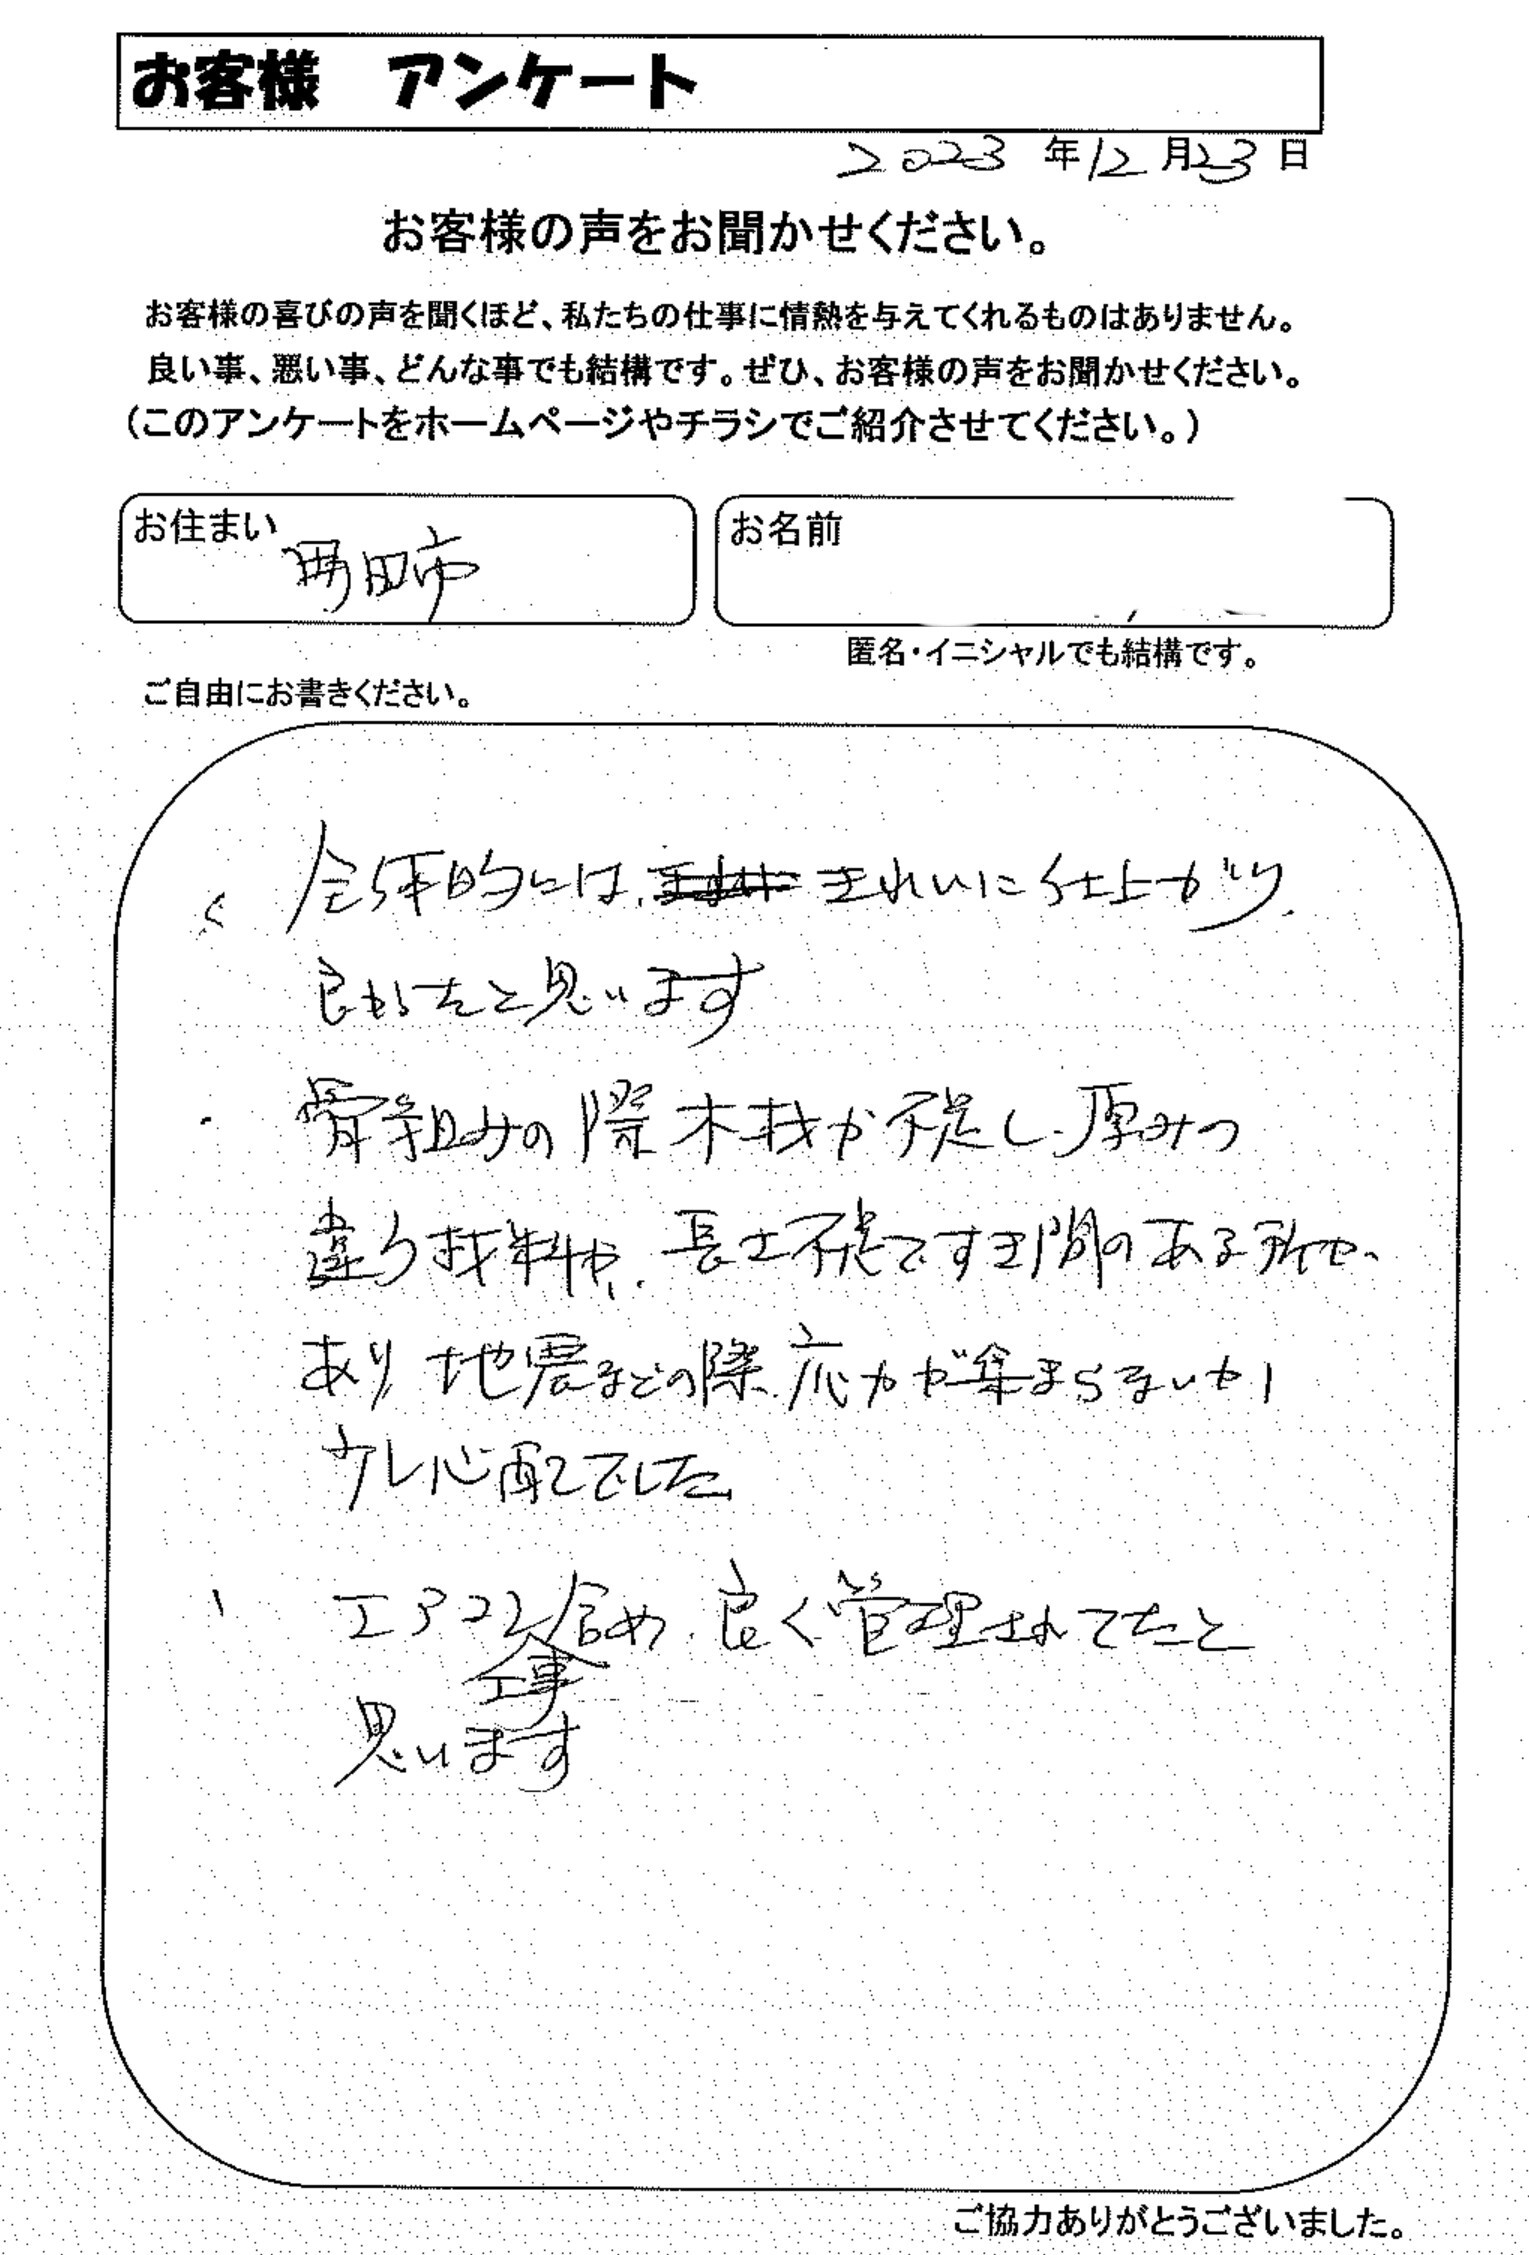 お客様 アンケート
2023 年 12 月 23 日
お客様の声をお聞かせください。
お客様の喜びの声を聞くほど、私たちの仕事に情熱を与えてくれるものはありません。
良い事、悪い事、どんな事でも結構です。ぜひ、お客様の声をお聞かせください。
（このアンケートをホームページやチラシでご紹介させてください。）
お住まい
田市
お名前
匿名・イニシャルでも結構です。
ご自由にお書きください。
全体的には、きれいに仕上がり
良かったと思います
・骨組みの際 木材が不足し、厚みの
違う材料や、長さ不足ですき間のある所が
あり 地震などの際、応力が集まらないか
少し心配でした
エアコン工事含め、良く管理されてたと
思います
ご協力ありがとうございました。